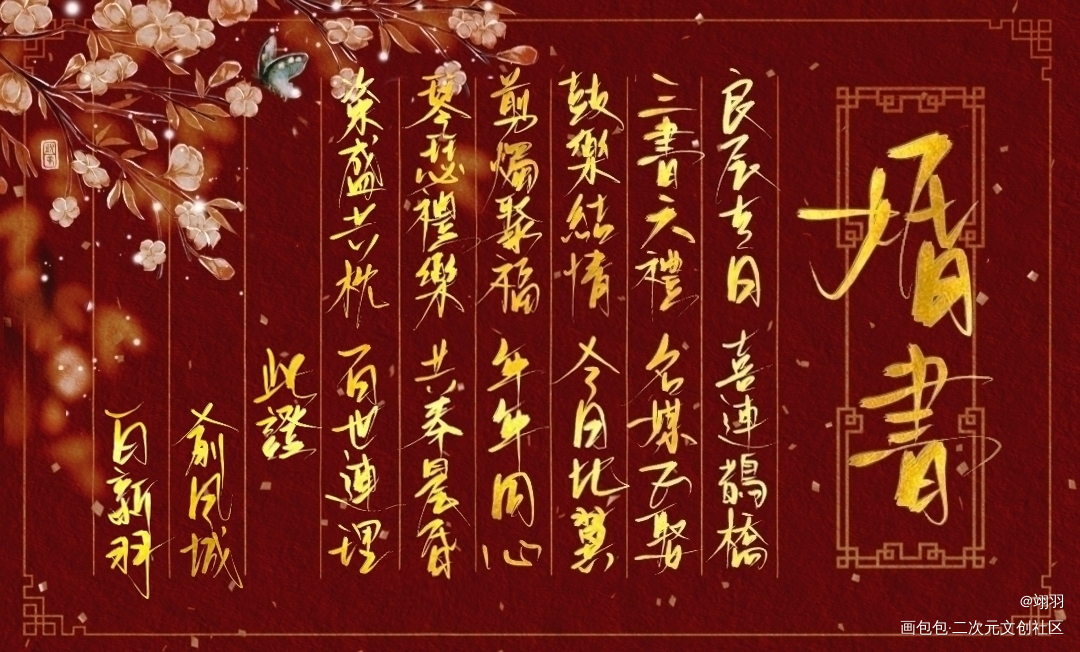 婚書
良辰吉日 喜連鵲橋
三書六禮 名媒正娶
鼓樂結情 今日比翼
剪燭聚福 年年同心
琴瑟禮樂 共奉晨昏
粢盛共枕 百世連理
此證
俞风城
百新羽
@翊羽
画包包·二次元文创社区